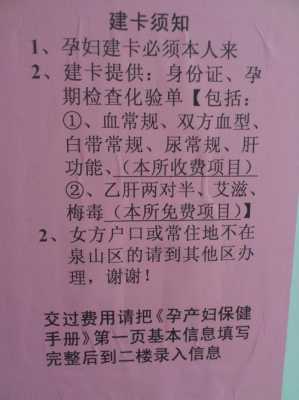 建卡须知
1、孕妇建卡必须本人来
2、建卡提供：身份证、孕
期检查化验单【包括：
①、血常规、双方血型、
白带常规、尿常规、肝
功能、(本所收费项目)
②、乙肝两对半、艾滋、
梅毒(本所免费项目)】
2、女方户口或常住地不在
泉山区的请到其他区办
理，谢谢！
交过费用请把《孕产妇保健
手册》第一页基本信息填写
完整后到二楼录入信息